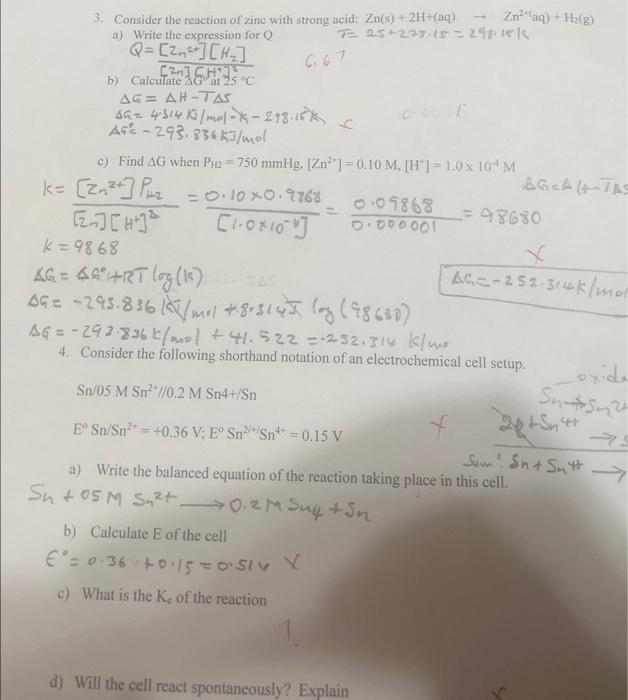 3. Consider the reaction of zinc with strong acid: Zn(s) + 2H+(aq) → Zn²⁺(aq) + H₂(g)
a) Write the expression for Q
T= 25+273.15 = 298.15k
Q = [Zn²⁺][H₂]
[Zn][H⁺]²
6.67
b) Calculate ΔG° at 25 °C
ΔG = ΔH - TΔS
ΔG°= -293.836KJ/mol
c) Find ΔG when P_H2 = 750 mmHg, [Zn²⁺] = 0.10 M, [H⁺] = 1.0 x 10⁻⁴ M
k = [Zn²⁺] P_H2 = 0.10×0.9868 = 0.09868 = 98680
[Zn][H⁺]² [1.0×10⁻⁴] 0.000001
k = 9868
ΔG = ΔG°+RT log(k)
ΔG=-252.314k/mol
ΔG = -293.836 KJ/mol + 8.314J log (98680)
ΔG = -293.836 k/mol + 41.522 = -252.314 k/mo
4. Consider the following shorthand notation of an electrochemical cell setup.
oxida
Sn/05 M Sn²⁺//0.2 M Sn4+/Sn
Sn→Sn2+
E° Sn/Sn²⁺ = +0.36 V; E° Sn²⁺/Sn⁴⁺ = 0.15 V
+Sn⁴⁺ →
Sum: Sn + Sn⁴⁺ →
a) Write the balanced equation of the reaction taking place in this cell.
Sn + 05 M Sn²⁺ → 0.2M Sn4 + Sn
b) Calculate E of the cell
E°= 0.36 + 0.15 = 0.51v
c) What is the Kc of the reaction
d) Will the cell react spontaneously? Explain